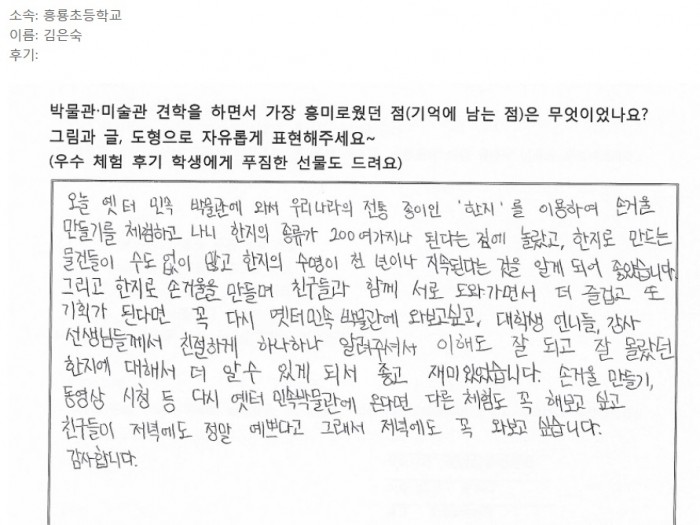 소속: 흥룡초등학교
이름: 김은숙
후기:
박물관·미술관 견학을 하면서 가장 흥미로웠던 점(기억에 남는 점)은 무엇이었나요?
그림과 글, 도형으로 자유롭게 표현해주세요~
(우수 체험 후기 학생에게 푸짐한 선물도 드려요)
오늘 옛터 민속 박물관에 와서 우리나라의 전통 종이인 '한지'를 이용하여 손거울
만들기를 체험하고 나니 한지의 종류가 200여가지나 된다는 점에 놀랐고, 한지로 만드는
물건들이 수도 없이 많고 한지의 수명이 천 년이나 지속된다는 것을 알게 되어 좋았습니다.
그리고 한지로 손거울을 만들며 친구들과 함께 서로 도와가면서 더 즐겁고 또
기회가 된다면 꼭 다시 옛터민속 박물관에 와보고싶고, 대학생 언니들, 강사
선생님들께서 친절하게 하나하나 알려주셔서 이해도 잘 되고 잘 몰랐던
한지에 대해서 더 알 수 있게 되서 좋고 재미있었습니다. 손거울 만들기,
동영상 시청 등 다시 옛터 민속박물관에 온다면 다른 체험도 꼭 해보고 싶고
친구들이 저녁에도 정말 예쁘다고 그래서 저녁에도 꼭 와보고 싶습니다.
감사합니다.